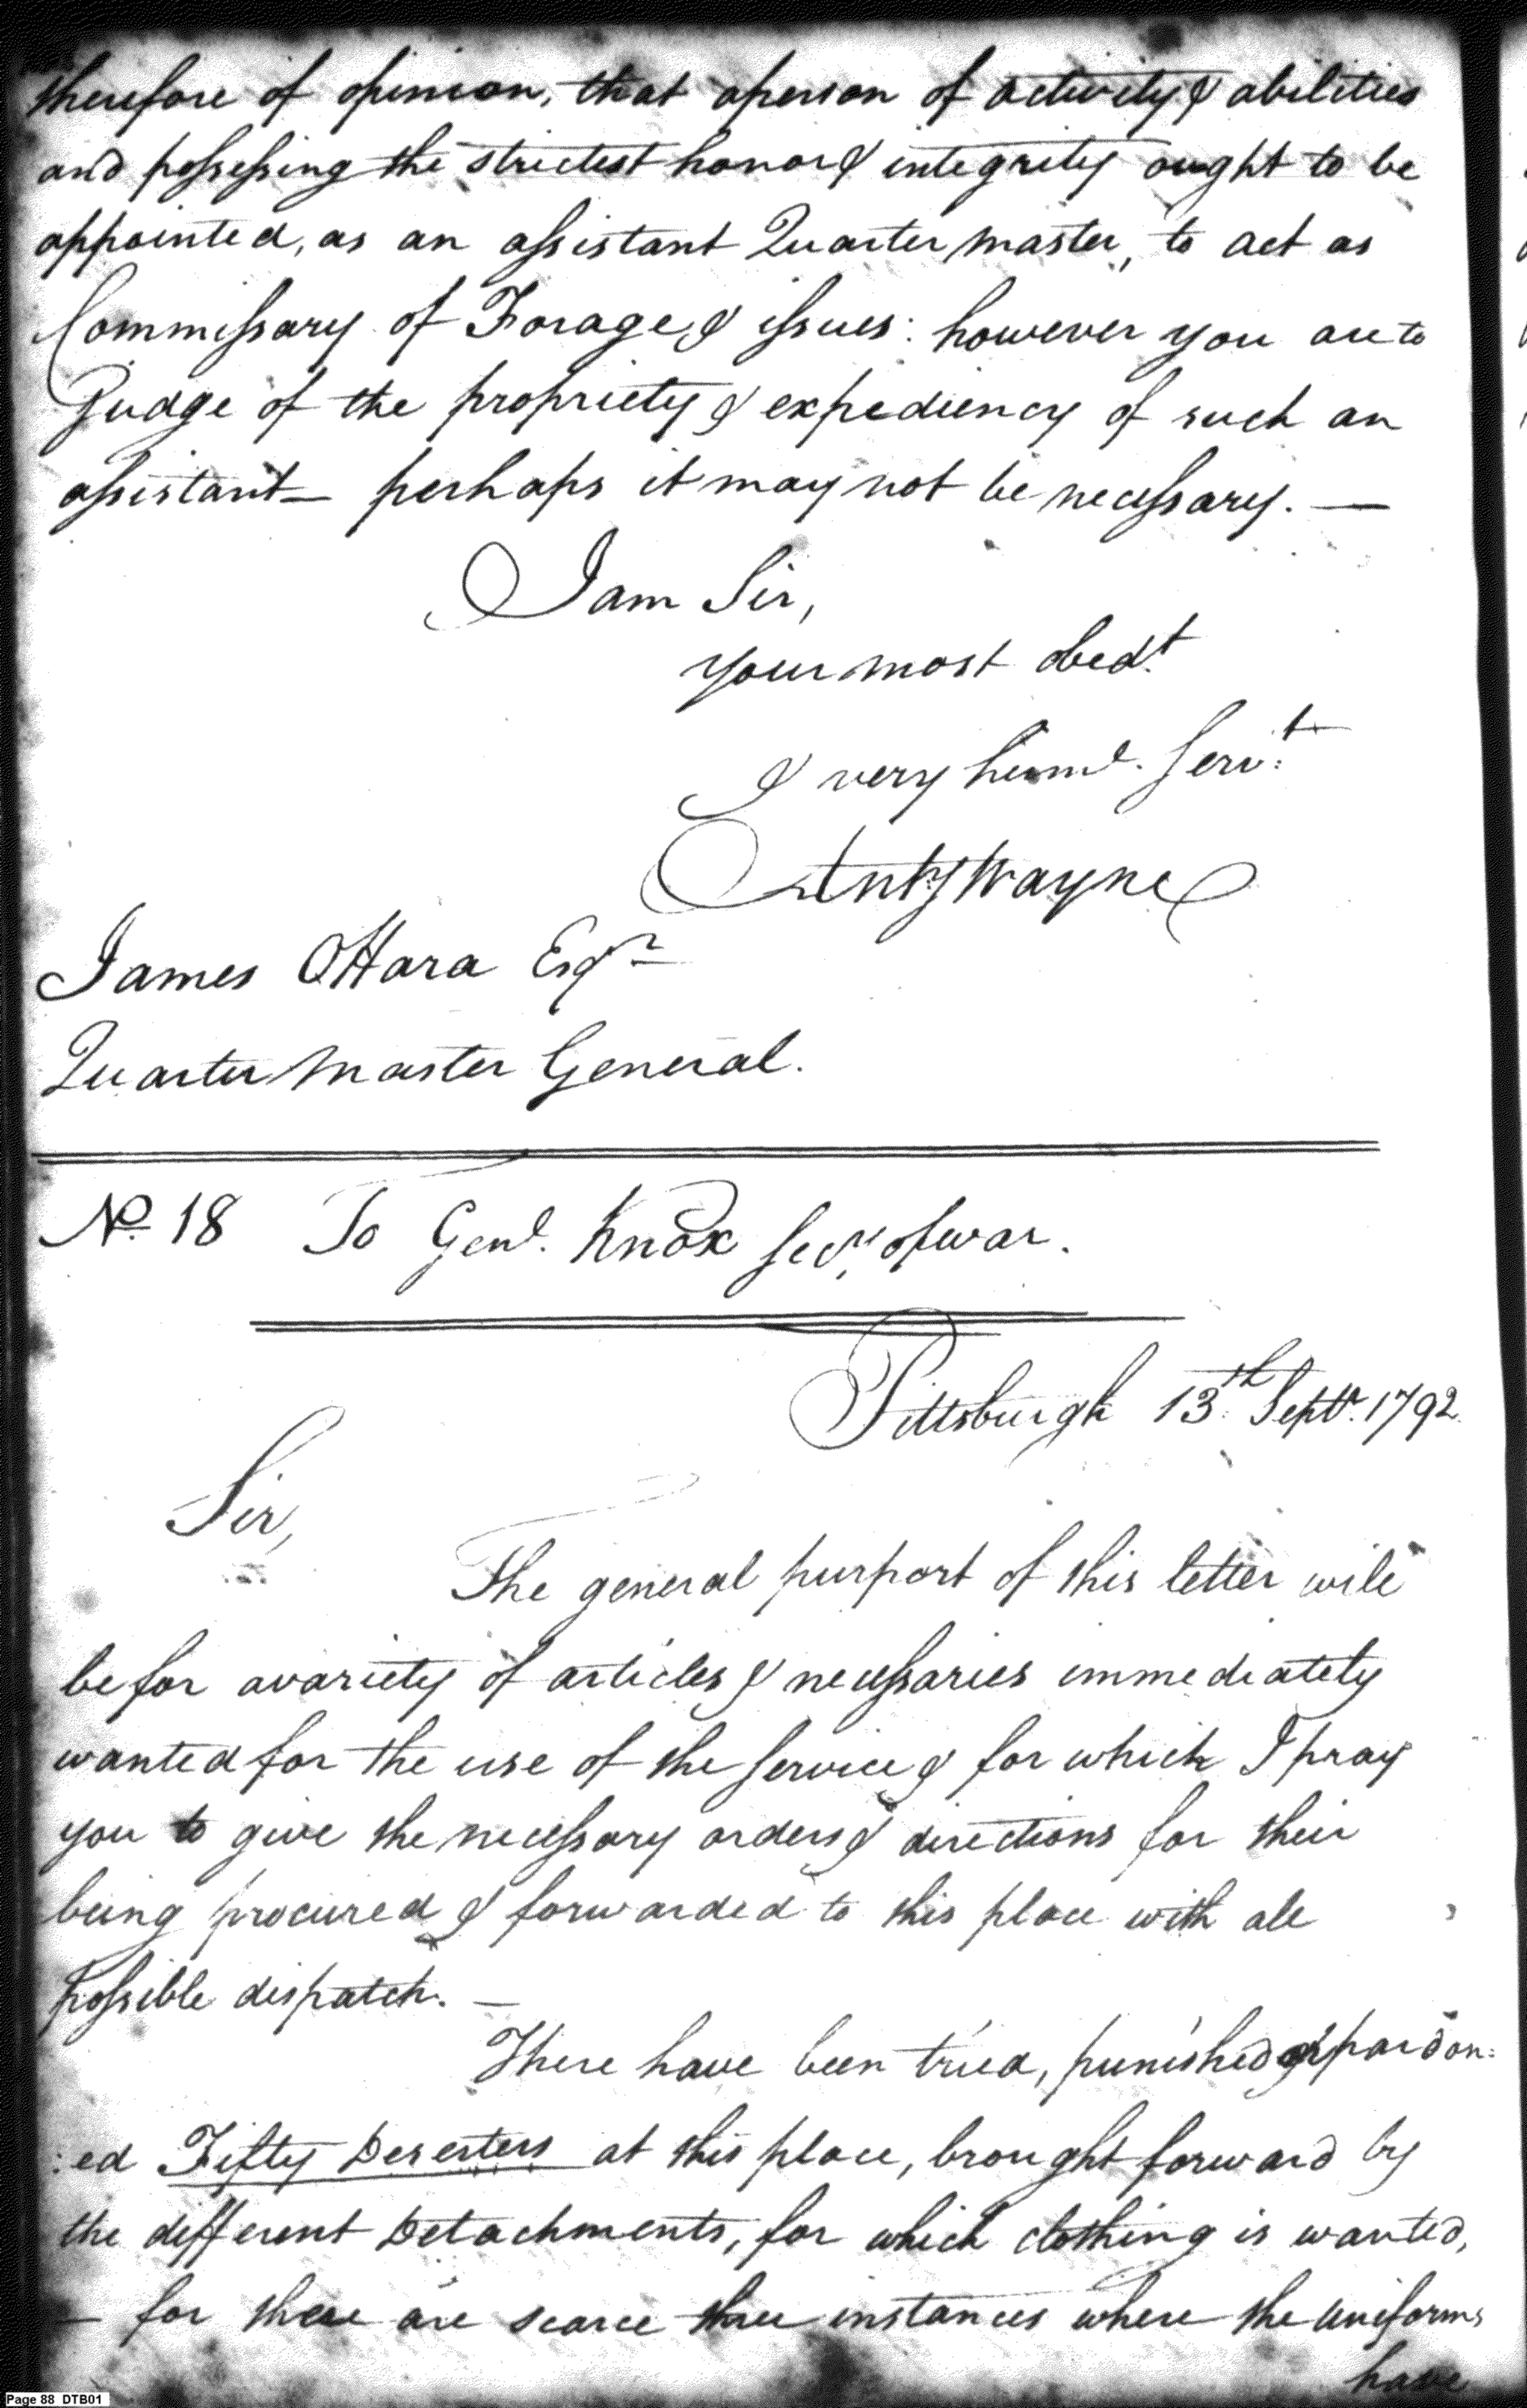 therefore of opinion, that a person of activity & abilities
and possessing the strictest honor & integrity ought to be
appointed, as an assistant Quarter Master, to act as
Commissary of Forage & issues: however you are to
Judge of the propriety & expediency of such an
assistant— perhaps it may not be necessary. —
I am Sir,
your most obedt.
& very huml. Servt.
Anty Wayne
James OHara Esqr
Quarter Master General.
No. 18 To Genl. Knox Secy. of war.
Pittsburgh 13th Septr. 1792
Sir,
The general purport of this letter will
be for a variety of articles & necessaries immediately
wanted for the use of the service & for which I pray
you to give the necessary orders & directions for their
being procured & forwarded to this place with all
possible dispatch. —
There have been tried, punished & pardon:
:ed Fifty Deserters at this place, brought forward by
the different Detachments, for which clothing is wanted,
— for there are scarce three instances where the uniforms
have
Page 88 DTB01